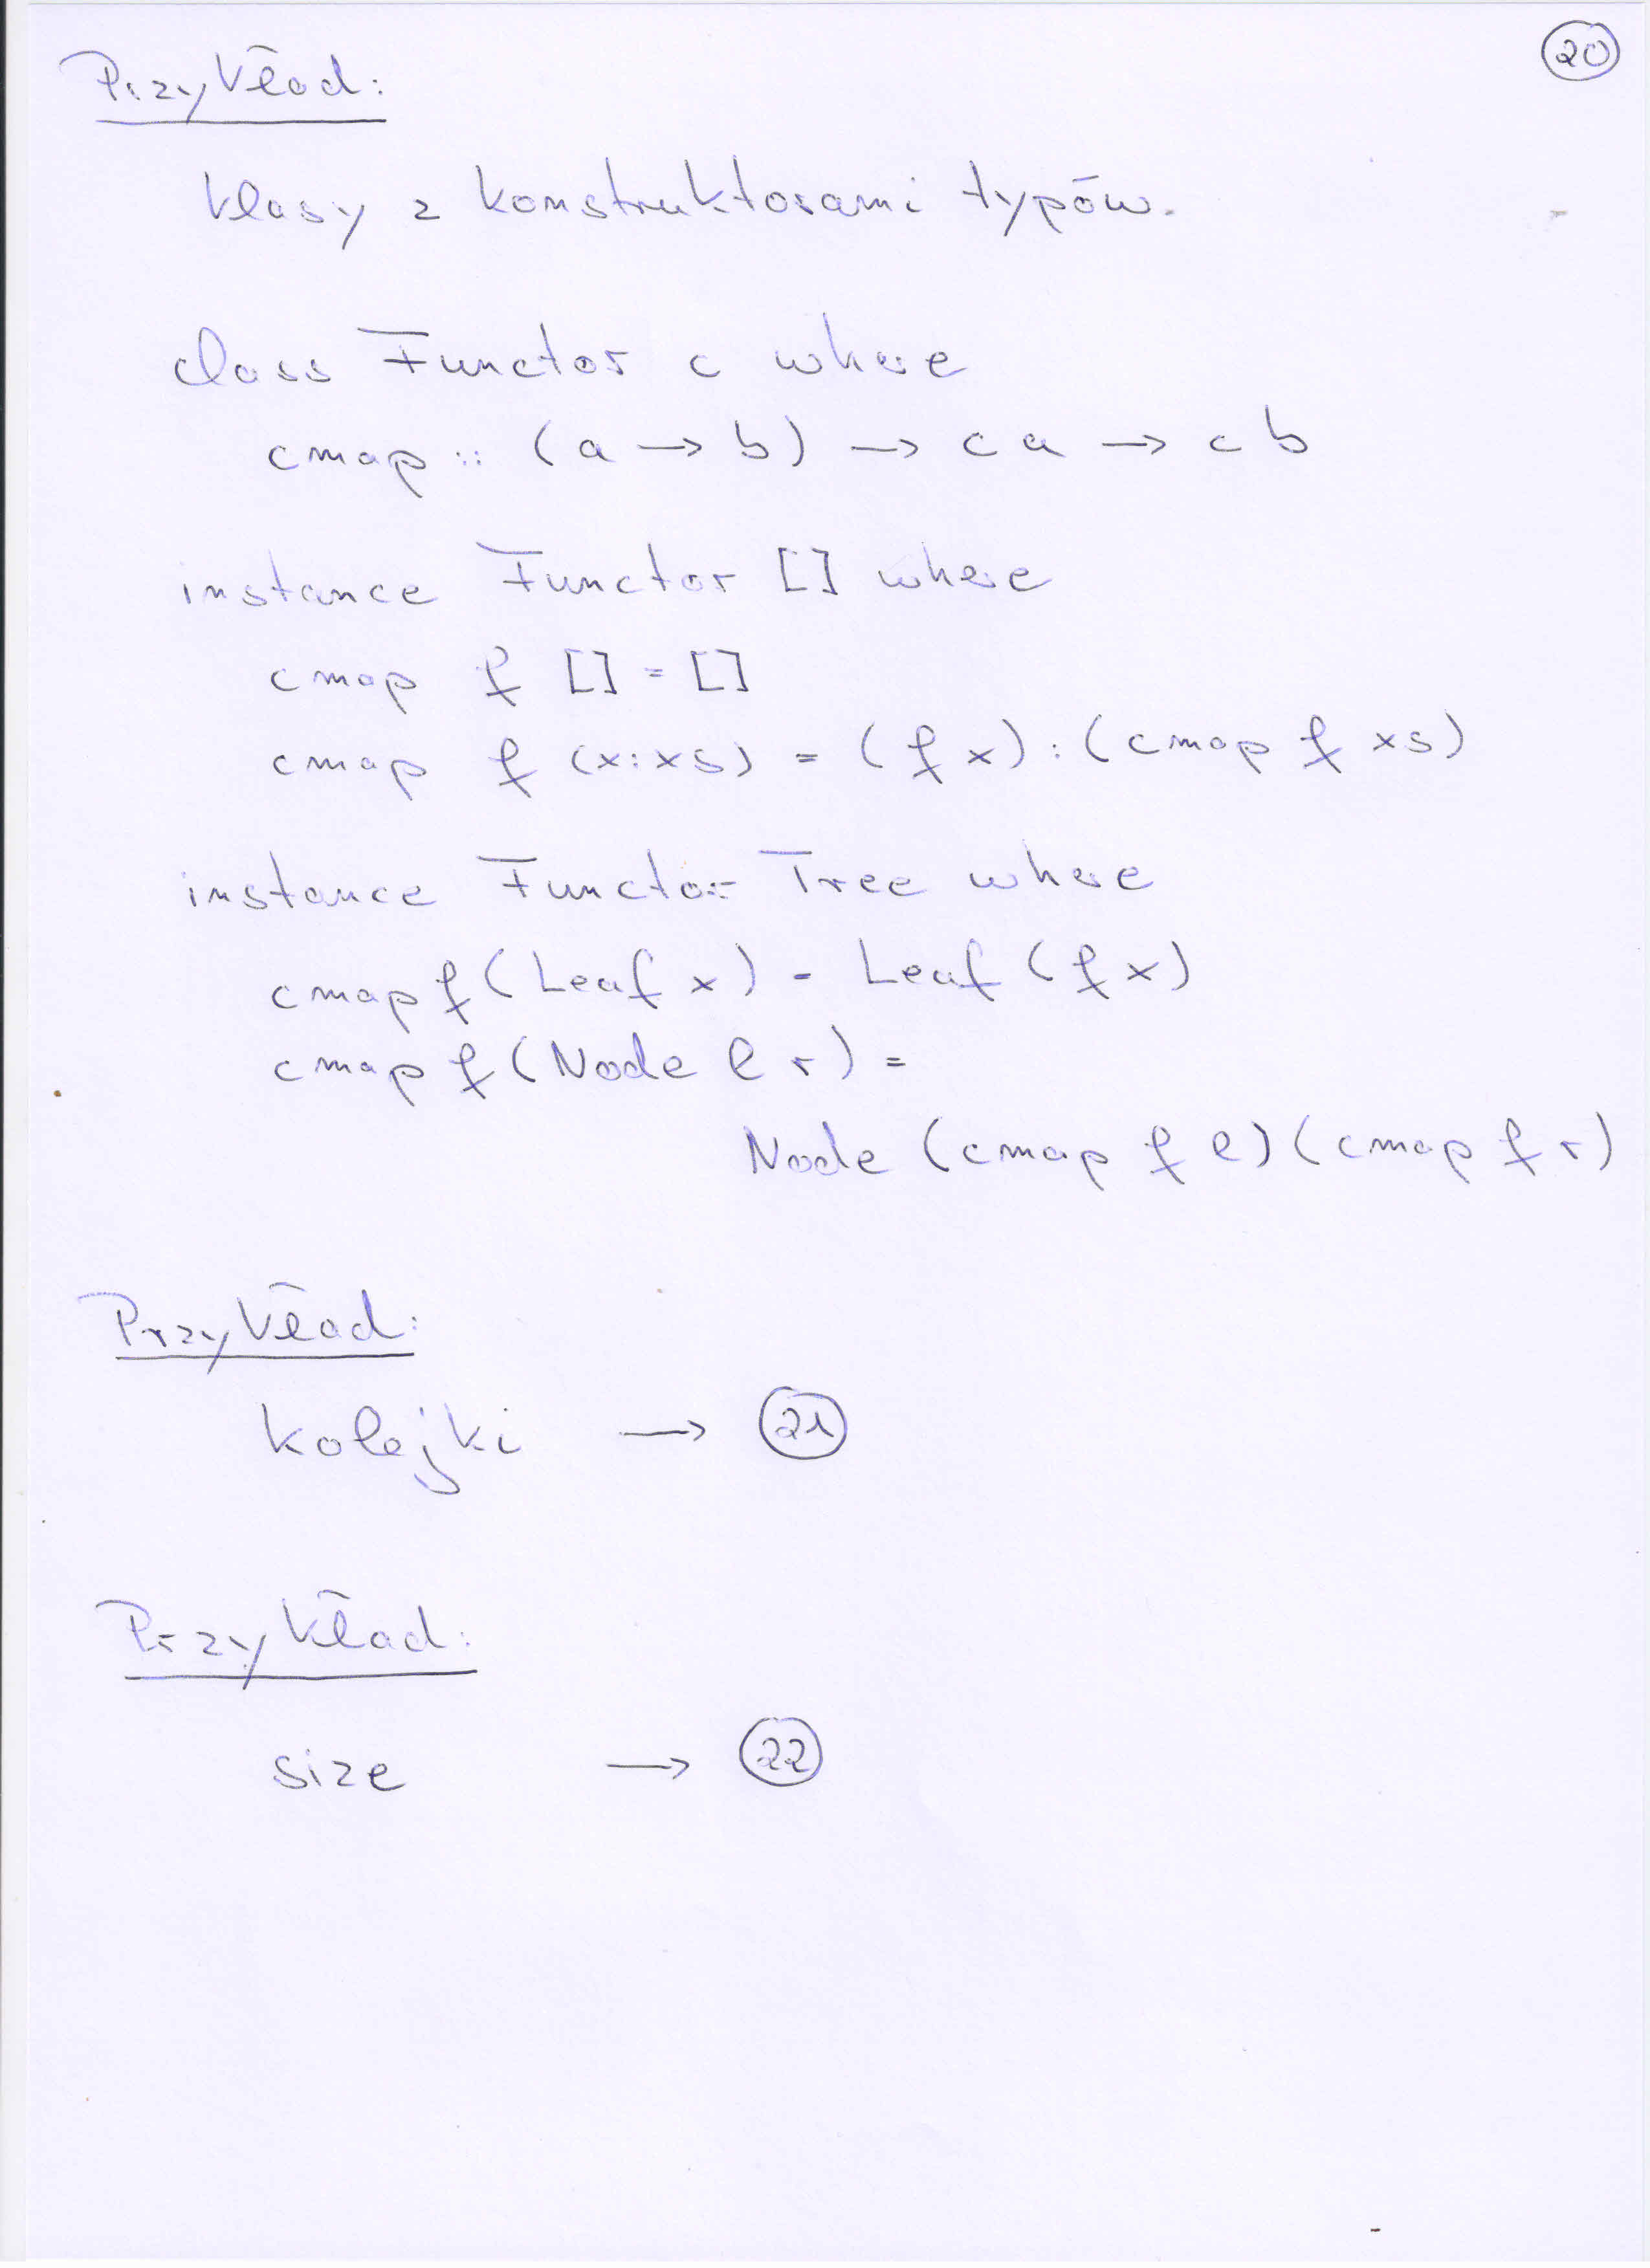 20
Przykład:
klasy z konstruktorami typów.
class Functor c where
cmap :: (a → b) → c a → c b
instance Functor [] where
cmap f [] = []
cmap f (x:xs) = (f x) : (cmap f xs)
instance Functor Tree where
cmap f (Leaf x) = Leaf (f x)
cmap f (Node l r) =
Node (cmap f l) (cmap f r)
Przykład:
kolejki → 21
Przykład:
size → 22